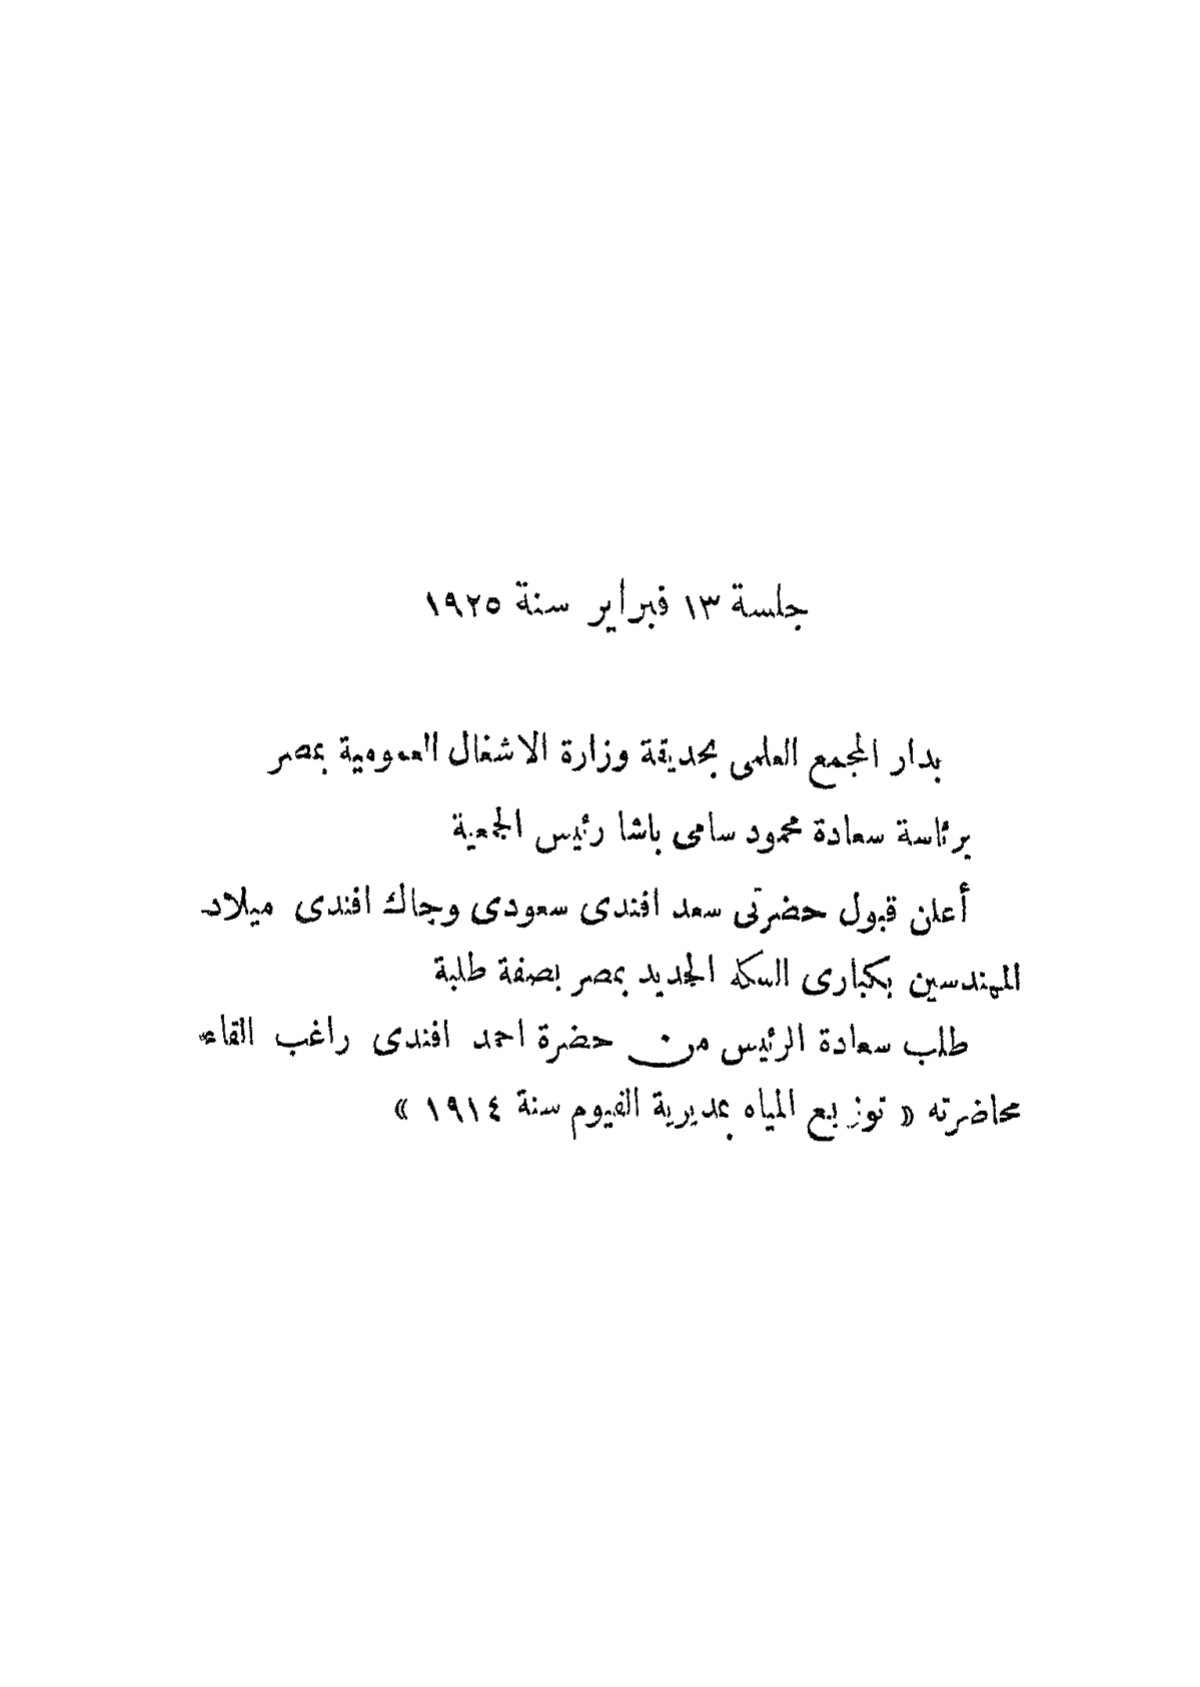 جلسة ١٣ فبراير سنة ١٩٢٥
بدار المجمع العلمى بحديقة وزارة الاشغال العمومية بمصر
برئاسة سعادة محمود سامى باشا رئيس الجمعية
أعلن قبول حضرتى سعد افندى سعودى وجاك افندى ميلاد
المهندسين بكبارى السكه الجديد بمصر بصفة طلبة
طلب سعادة الرئيس من حضرة احمد افندى راغب القاء
محاضرته « توزيع المياه بمديرية الفيوم سنة ١٩١٤ »